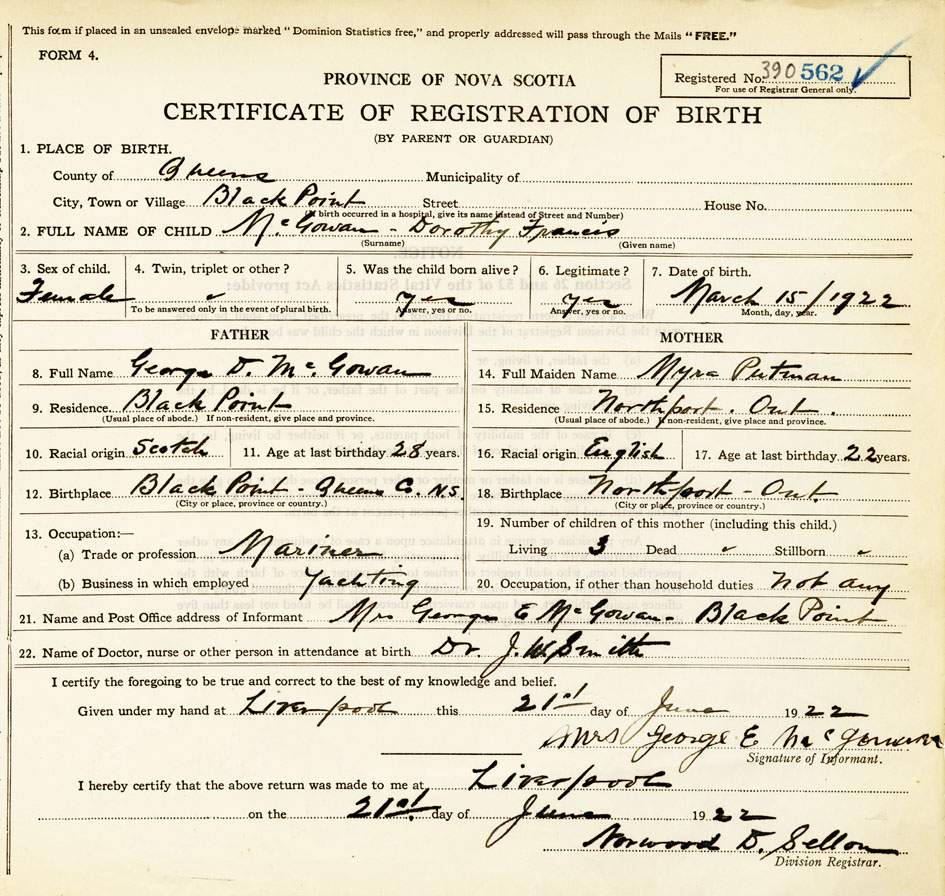 This form if placed in an unsealed envelope marked "Dominion Statistics free," and properly addressed will pass through the Mails "FREE."
FORM 4.
Registered No. 390 562
For use of Registrar General only.
PROVINCE OF NOVA SCOTIA
CERTIFICATE OF REGISTRATION OF BIRTH
(BY PARENT OR GUARDIAN)
1. PLACE OF BIRTH.
County of Queens Municipality of
City, Town or Village Black Point Street House No.
(If birth occurred in a hospital, give its name instead of Street and Number)
2. FULL NAME OF CHILD McGowan - Dorothy Francis
(Surname) (Given name)
3. Sex of child. 4. Twin, triplet or other? 5. Was the child born alive? 6. Legitimate? 7. Date of birth.
Female yes yes March 15/1922
To be answered only in the event of plural birth. Answer, yes or no. Answer, yes or no. Month, day, year.
FATHER MOTHER
8. Full Name George D. McGowan 14. Full Maiden Name Myra Putman
9. Residence. Black Point 15. Residence Northport. Ont.
(Usual place of abode.) If non-resident, give place and province. (Usual place of abode.) If non-resident, give place and province.
10. Racial origin Scotch 11. Age at last birthday 28 years. 16. Racial origin English 17. Age at last birthday 22 years.
12. Birthplace Black Point - Queens Co. N.S. 18. Birthplace Northport - Ont.
(City or place, province or country.) (City or place, province or country.)
13. Occupation:— 19. Number of children of this mother (including this child.)
(a) Trade or profession Mariner Living 3 Dead Stillborn
(b) Business in which employed Yachting 20. Occupation, if other than household duties not any
21. Name and Post Office address of Informant Mrs George E McGowan - Black Point
22. Name of Doctor, nurse or other person in attendance at birth Dr. J. W. Smith
I certify the foregoing to be true and correct to the best of my knowledge and belief.
Given under my hand at Liverpool this 21st day of June 1922
Mrs George E McGowan
Signature of Informant.
I hereby certify that the above return was made to me at Liverpool
on the 21st day of June 1922
Norwood D. Sellon
Division Registrar.